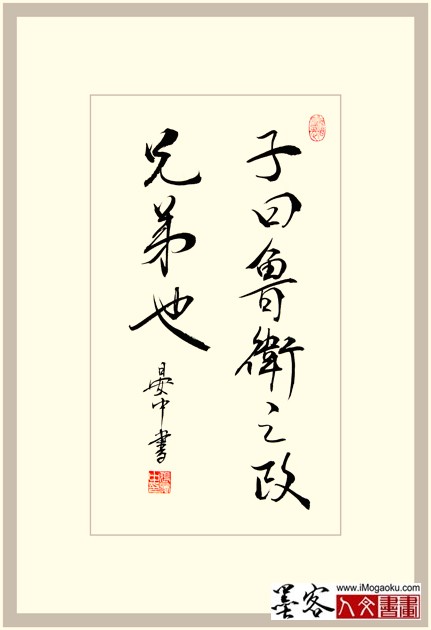 子曰魯衛之政
兄弟也
晏中書
墨客
www.iMogaoku.com
人文書畫